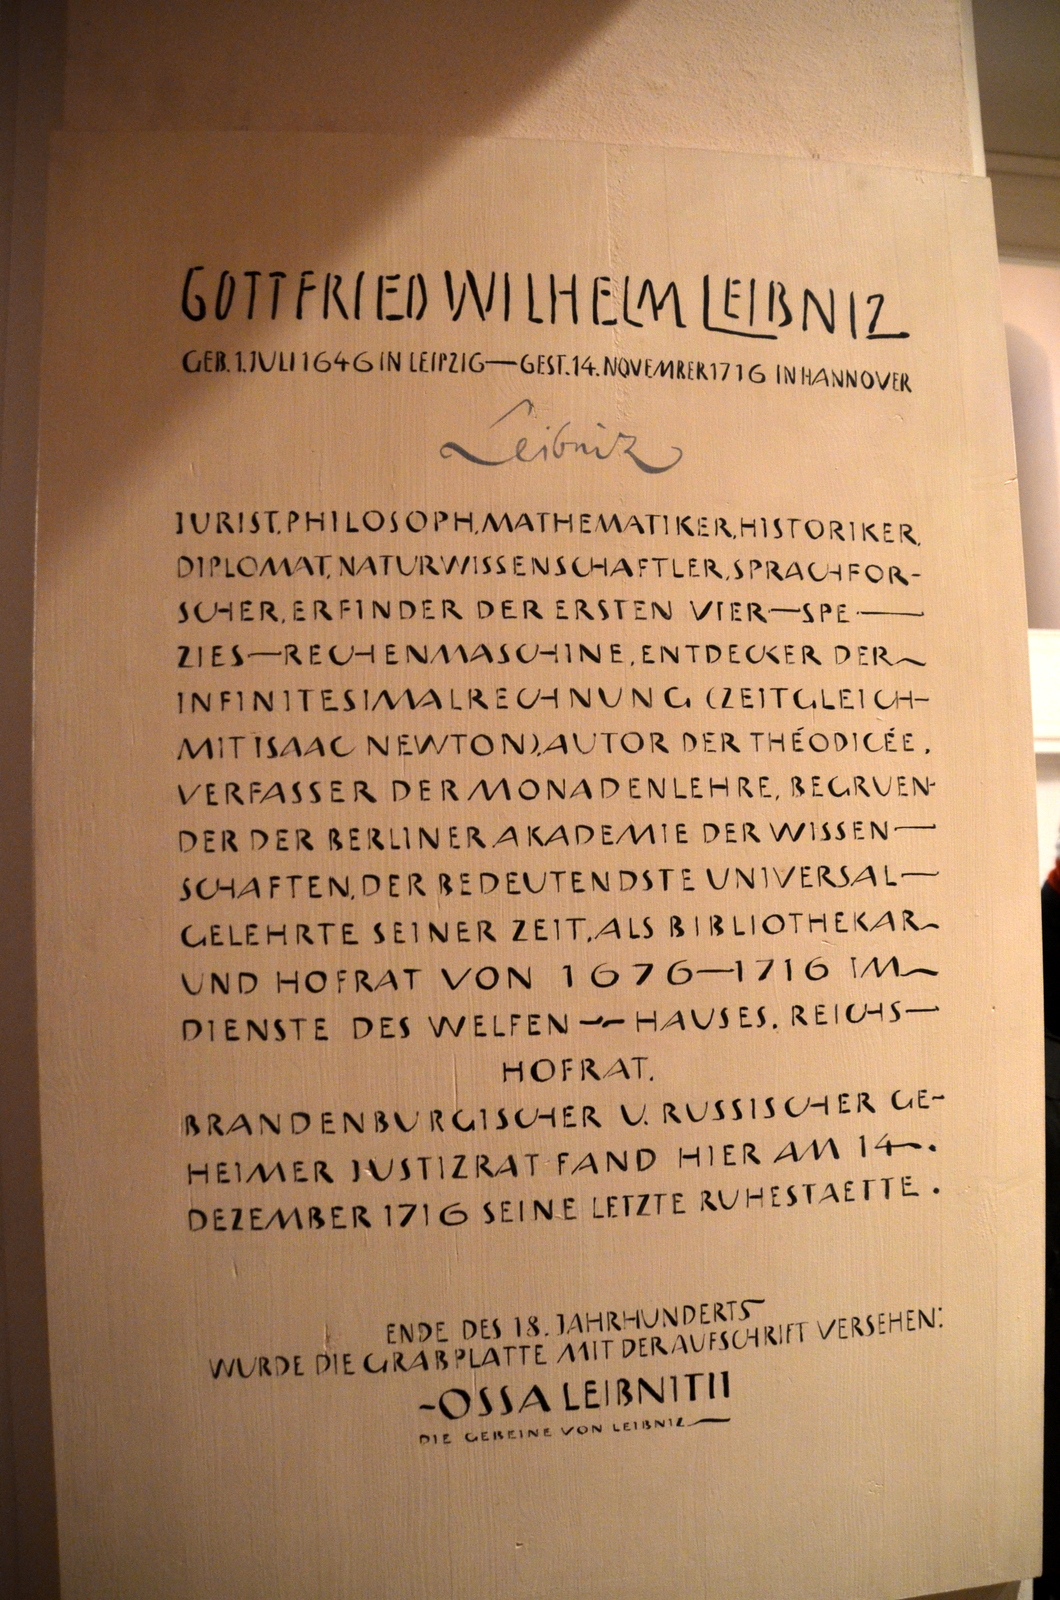 GOTTFRIED WILHELM LEIBNIZ
GEB. 1. JULI 1646 IN LEIPZIG—GEST. 14. NOVEMBER 1716 IN HANNOVER
Leibniz
JURIST, PHILOSOPH, MATHEMATIKER, HISTORIKER,
DIPLOMAT, NATURWISSENSCHAFTLER, SPRACHFOR-
SCHER, ERFINDER DER ERSTEN VIER—SPE—
ZIES—RECHENMASCHINE, ENTDECKER DER
INFINITESIMALRECHNUNG (ZEITGLEICH-
MIT ISAAC NEWTON), AUTOR DER THÉODICÉE,
VERFASSER DER MONADENLEHRE, BEGRUEN-
DER DER BERLINER AKADEMIE DER WISSEN—
SCHAFTEN, DER BEDEUTENDSTE UNIVERSAL—
GELEHRTE SEINER ZEIT, ALS BIBLIOTHEKAR
UND HOFRAT VON 1676—1716 IM
DIENSTE DES WELFEN—HAUSES. REICHS—
HOFRAT.
BRANDENBURGISCHER U. RUSSISCHER GE-
HEIMER JUSTIZRAT FAND HIER AM 14.
DEZEMBER 1716 SEINE LETZTE RUHESTAETTE.
ENDE DES 18. JAHRHUNDERTS
WURDE DIE GRABPLATTE MIT DER AUFSCHRIFT VERSEHEN:
-OSSA LEIBNITII
DIE GEBEINE VON LEIBNIZ—